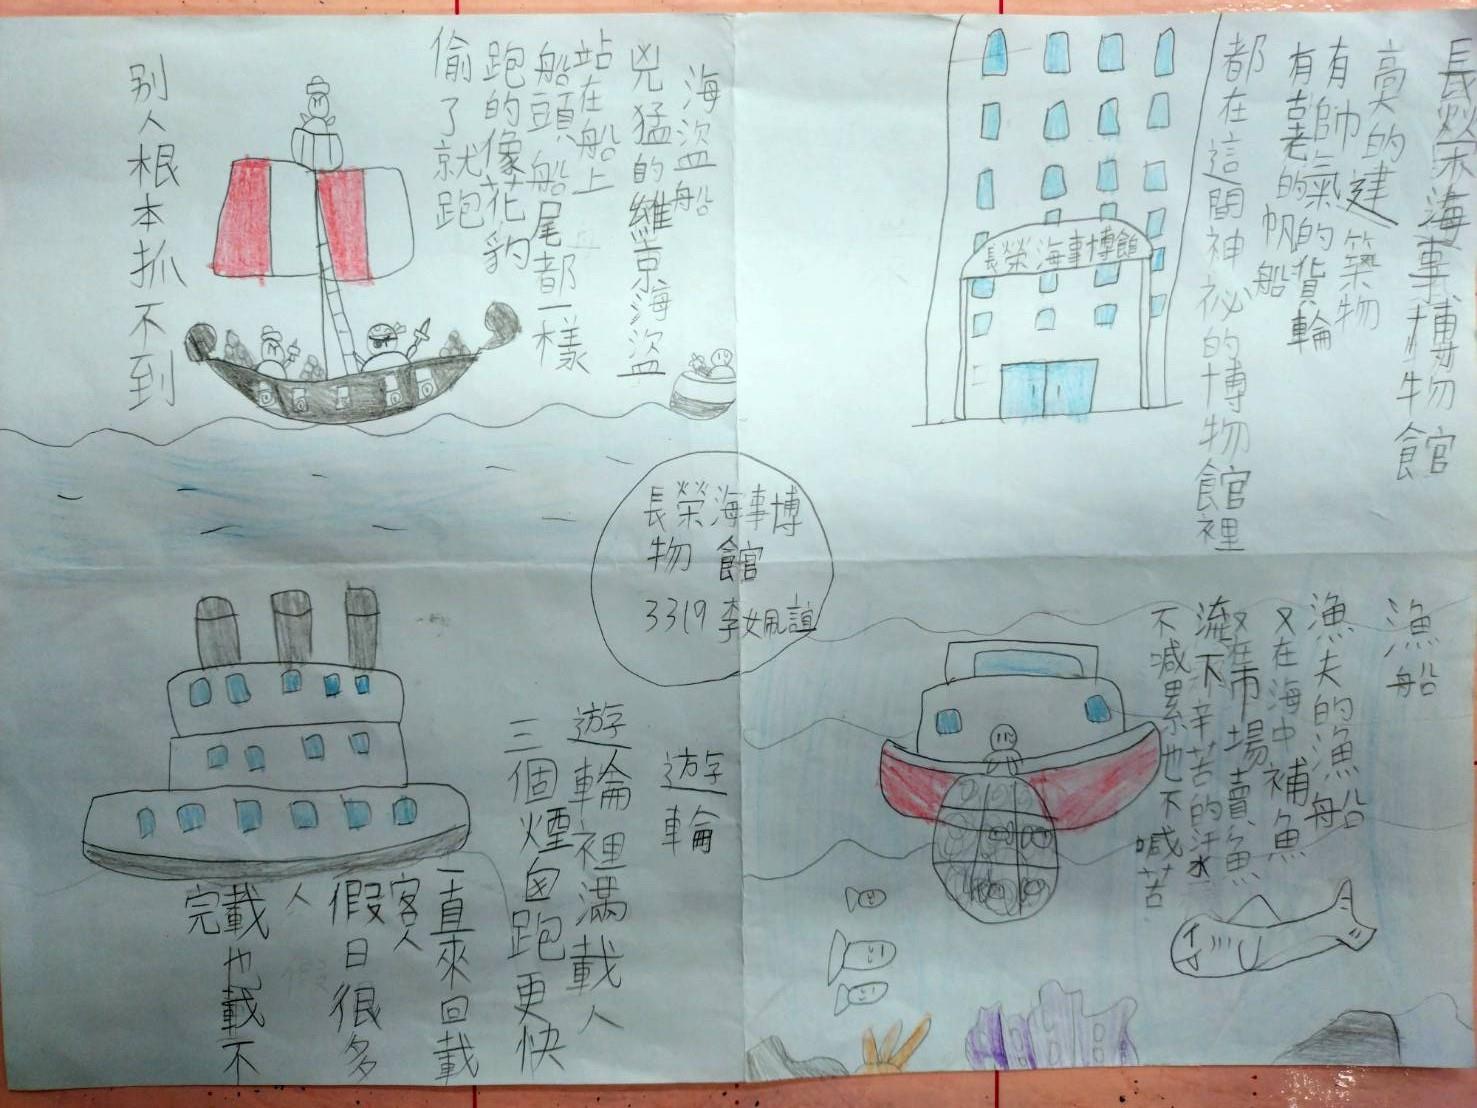 長榮海事博物館
高的建築物
有帥氣的貨輪
有古老的帆船
都在這間神祕的博物館裡
長榮海事博館
海盜船
兇猛的維京海盜
站在船上
船頭船尾都一樣
跑的像花豹
偷了就跑
別人根本抓不到
長榮海事博
物館
3319
漁船
漁夫的漁船
又在海中補魚
又在市場賣魚
流下辛苦的汗水
不喊累也不喊苦
遊輪
遊輪裡滿載人
三個煙囪跑更快
一直來回載
客人
假日很多
人
載也載不
完